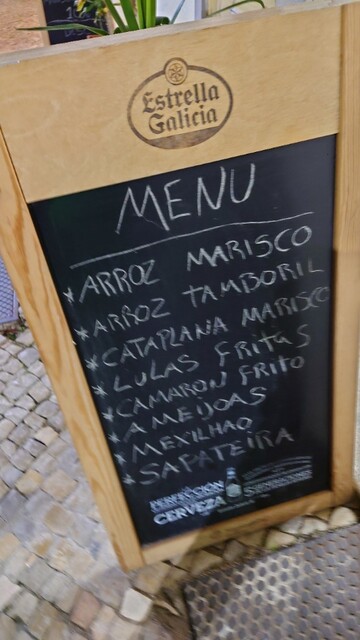 Estrella
Galicia
MENU
* ARROZ MARISCO
* ARROZ TAMBORIL
* CATAPLANA MARISCO
* LULAS FRITAS
* CAMARON FRITO
* AMEIJOAS
* MEXILHAO
* SAPATEIRA
PERFECCIÓN
CERVEZA